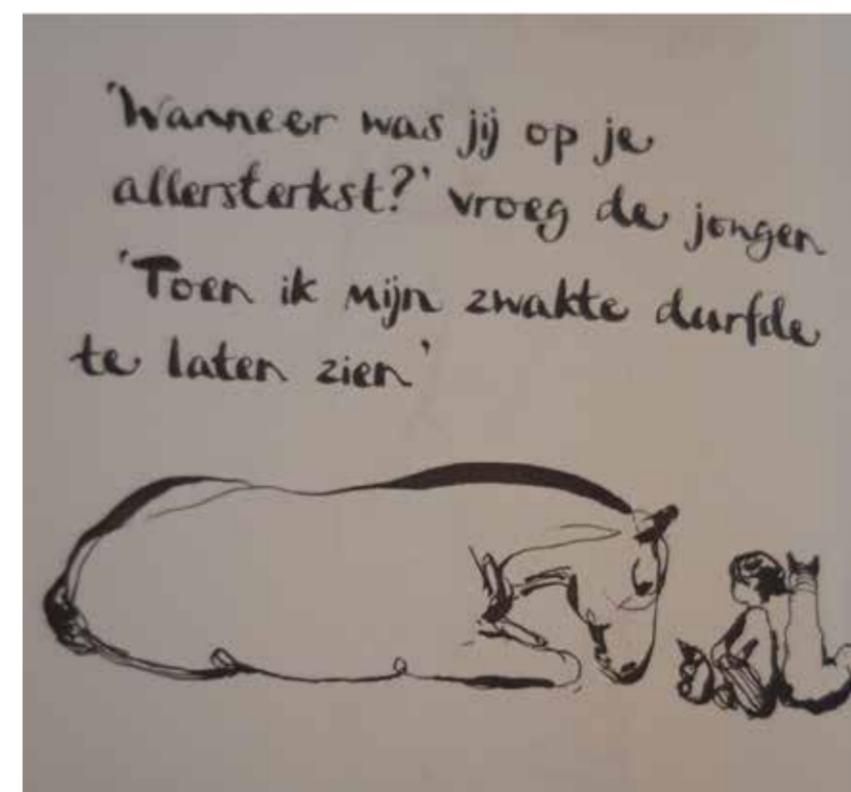 'Wanneer was jij op je
allersterkst?' vroeg de jongen
'Toen ik mijn zwakte durfde
te laten zien'